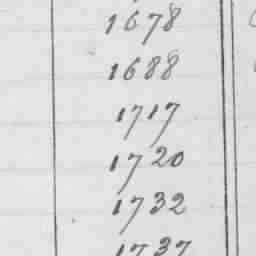 1678
1688
1717
1720
1732
1737